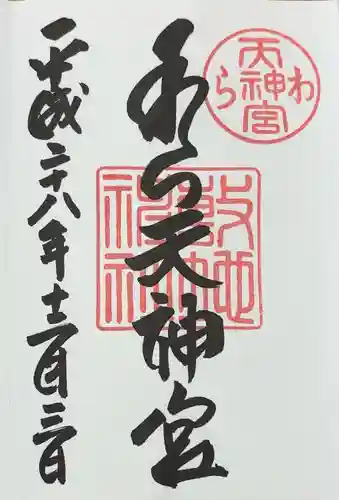 わら天神宮
わら
天神宮
敷地神社
平成二十八年十二月三日